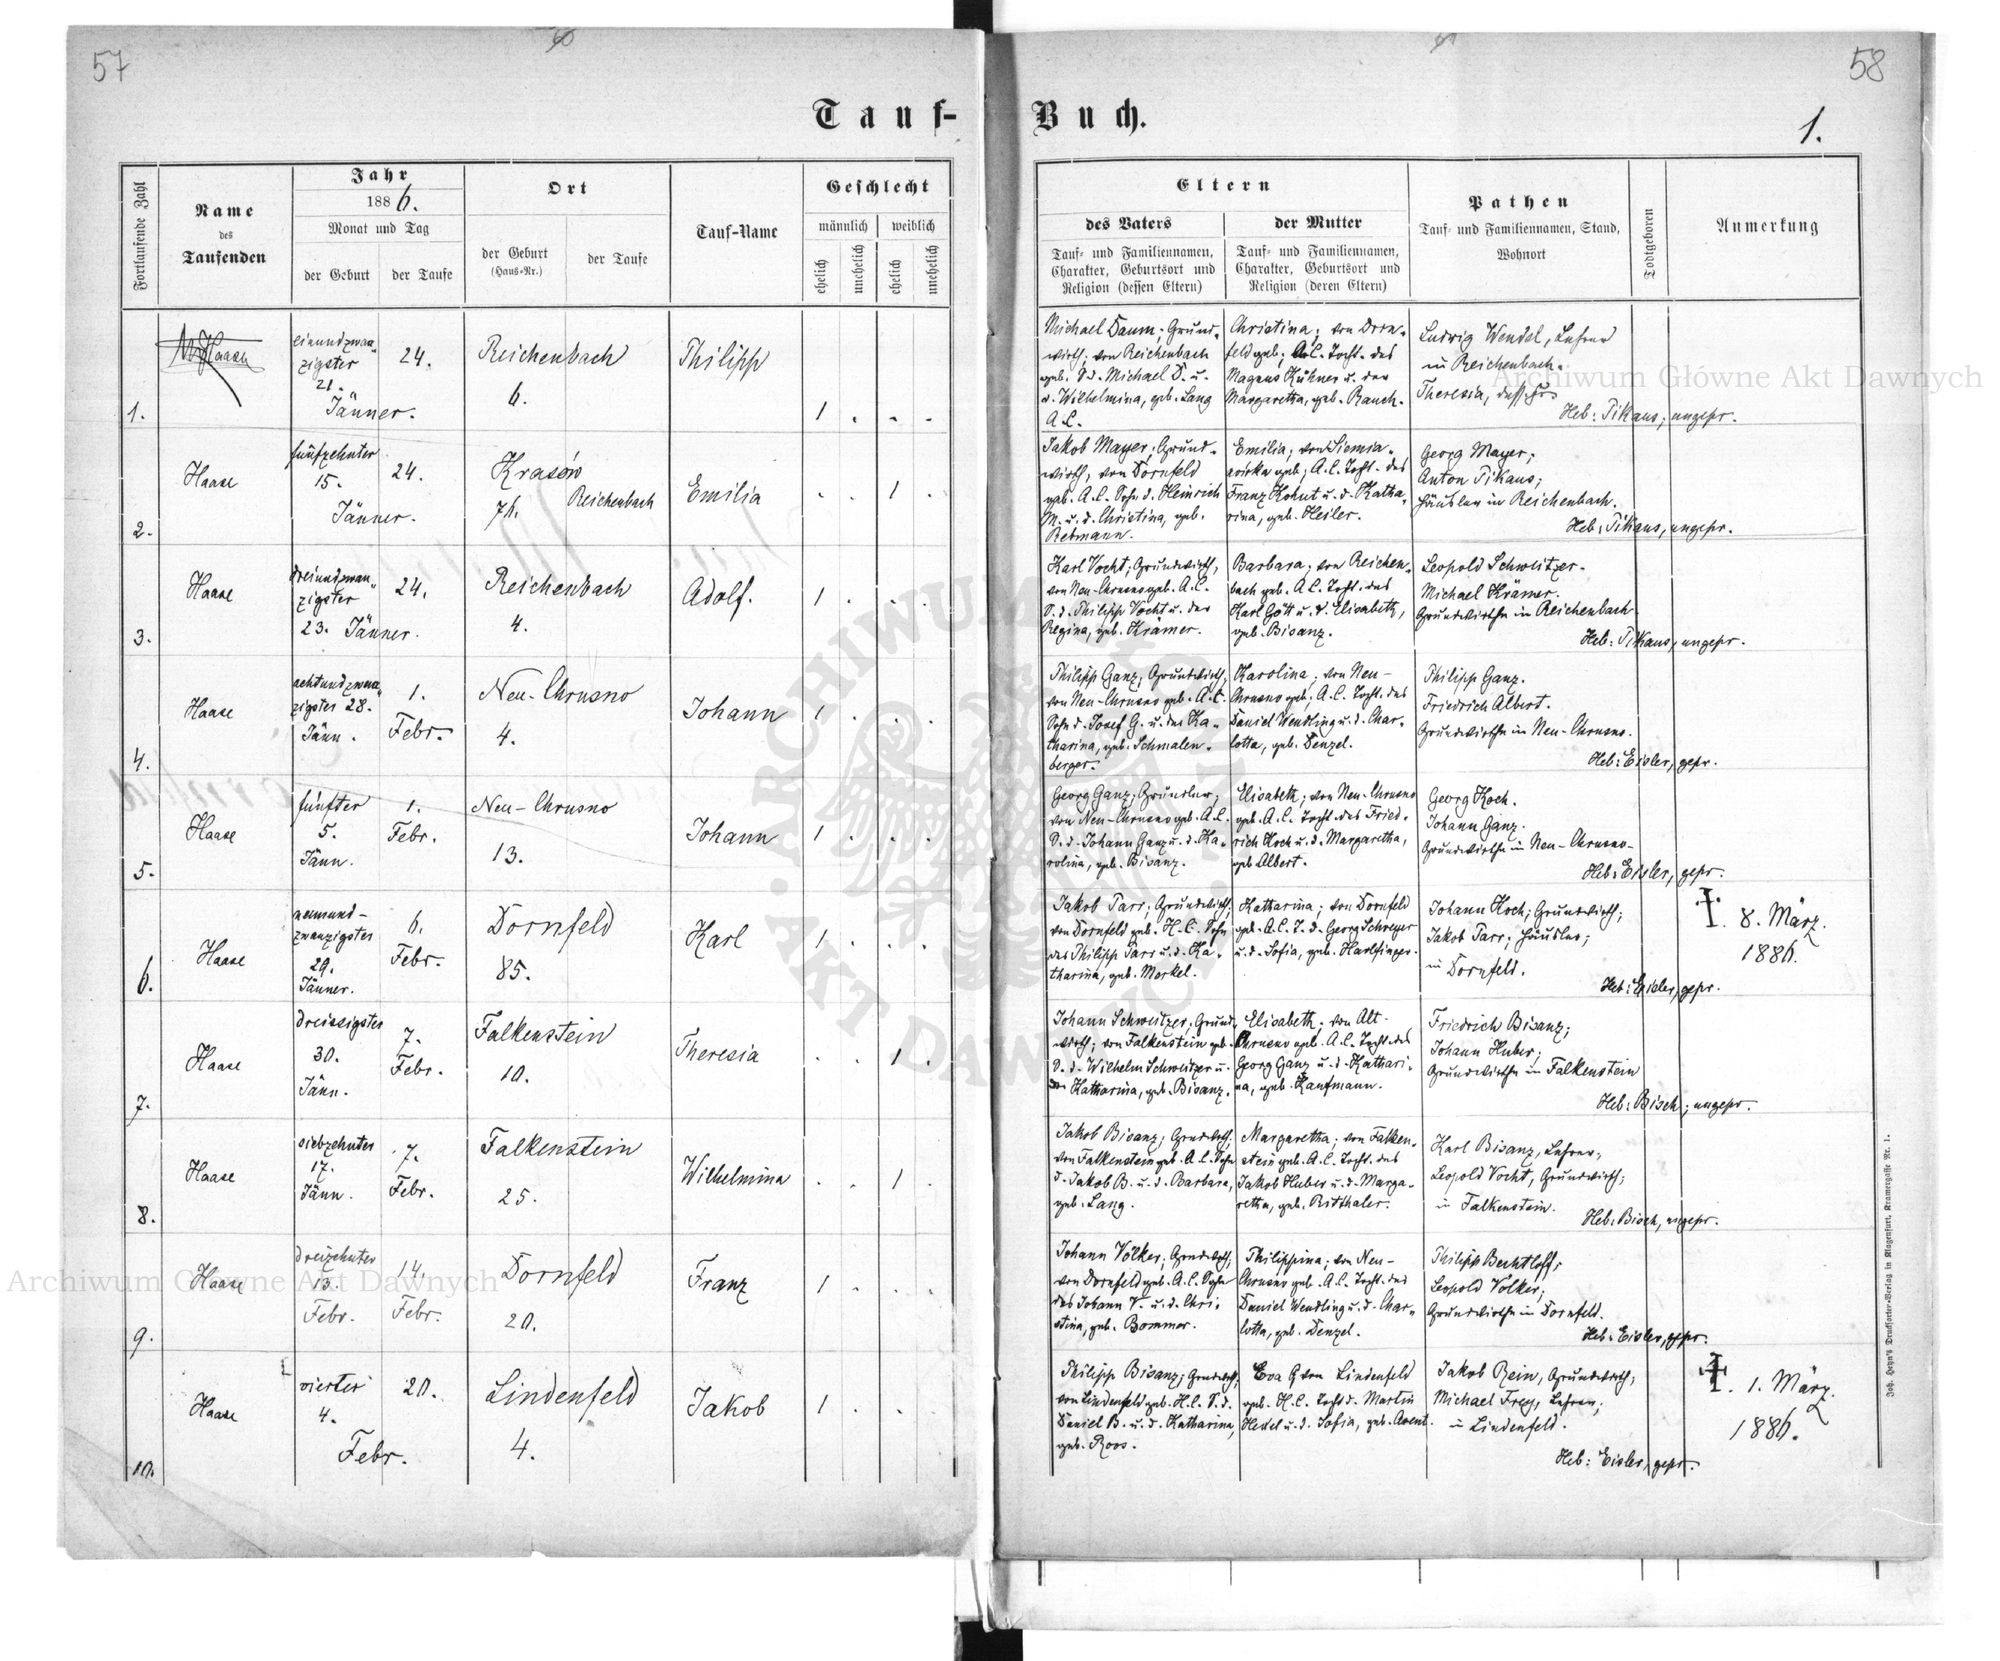 57
60
61
58
Tauf-
Buch.
1.
Fortlaufende Zahl
Name
des
Taufenden
Jahr
1886.
Monat und Tag
der Geburt
der Taufe
Ort
der Geburt
(Haus-Nr.)
der Taufe
Tauf-Name
Geschlecht
männlich
weiblich
ehelich
unehelich
ehelich
unehelich
Eltern
des Vaters
Tauf- und Familiennamen,
Charakter, Geburtsort und
Religion (dessen Eltern)
der Mutter
Tauf- und Familiennamen,
Charakter, Geburtsort und
Religion (deren Eltern)
Pathen
Tauf- und Familiennamen, Stand,
Wohnort
Todtgeboren
Anmerkung
1.
Haase
einundzwan„
zigster
21.
Jänner.
24.
Reichenbach
6.
Philipp
1 . . .
Michael Daum; Grund-
wirth; von Reichenbach
geb. S. d. Michael D. u.
d. Wilhelmina, geb. Lang
A.C.
Christina; von Dorn-
feld geb; A.C. Tocht. des
Magnus Kühner u. der
Margaretha, geb. Rauch.
Ludwig Wendel, Lehrer
in Reichenbach.
Theresia,
Heb: Tikaus; ungepr.
2.
Haase
fünfzehnter
15.
Jänner.
24.
Krasów
76.
Reichenbach
Emilia
. . 1 .
Jakob Mayer; Grund-
wirth, von Dornfeld
geb. A.C. Sohn d. Heinrich
M. u. d. Christina, geb.
Rebmann.
Emilia; von Siemia-
nowka geb; A.C. Tocht. des
Franz Kohut u. d. Katha-
rina, geb. Heiler.
Georg Mayer;
Anton Tikaus;
Häusler in Reichenbach.
Heb: Tikaus, ungepr.
3.
Haase
dreiundzwan„
zigster
23. Jänner.
24.
Reichenbach
4.
Adolf.
1 . . .
Karl Vocht; Grundwirth,
von Neu-Chrusno geb. A.C.
S. d. Philipp Vocht u. der
Regina, geb. Krämer.
Barbara; von Reichen-
bach geb. A.C. Tocht. des
Karl Gött u. d. Elisabeth,
geb. Bisanz.
Leopold Schweitzer.
Michael Krämer.
Grundwirthe in Reichenbach
Heb: Tikaus, ungepr.
4.
Haase
achtundzwan„
zigster 28.
Jänn.
1.
Febr.
Neu-Chrusno
4.
Johann
1 . . .
Philipp Ganz; Grundwirth,
von Neu-Chrusno geb. A.C.
Sohn d. Josef G. u. der Ka-
tharina, geb. Schmalen-
berger.
Karolina; von Neu-
Chrusno geb; A.C. Tocht. des
Daniel Wendling u. d. Char-
lotta, geb. Denzel.
Philipp Ganz.
Friedrich Albert.
Grundwirthe in Neu-Chrusno.
Heb: Eisler, gepr.
5.
Haase
fünfter
5.
Jänn.
1.
Febr.
Neu-Chrusno
13.
Johann
1 . . .
Georg Ganz;
von Neu-Chrusno geb. A.C.
S. d. Johann Ganz u. d. Ka-
rolina, geb. Bisanz.
Elisabeth; von Neu-Chrusno
geb. A.C. Tocht. des Fried-
rich Koch u. d. Margaretha,
geb Albert.
Georg Koch.
Johann Ganz.
Grundwirthe in Neu-Chrusno-
Heb: Eisler, gepr.
6.
Haase
neunund-
zwanzigster
29.
Jänner.
6.
Febr.
Dornfeld
85.
Karl
1 . . .
Jakob Parr; Grundwirth;
von Dornfeld geb. H.C. Sohn
des Philipp Parr u. d. Ka-
tharina, geb. Merkel.
Katharina; von Dornfeld
geb. A.C. T. d. Georg Schreyer
u. d. Sofia, geb. Harlfinger.
Johann Koch; Grundwirth;
Jakob Parr; Häusler;
in Dornfeld.
Heb: Eisler, gepr.
†. 8. März.
1886.
7.
Haase
dreissigster
30.
Jänn.
7.
Febr.
Falkenstein
10.
Theresia
. . 1 .
Johann Schweitzer; Grund-
wirth; von Falkenstein geb.
S. d. Wilhelm Schweitzer u.
der Katharina, geb. Bisanz.
Elisabeth; von Alt-
Chrusno geb. A.C. Tocht. des
Georg Ganz u. d. Kathari-
na, geb. Kaufmann.
Friedrich Bisanz;
Johann Huber;
Grundwirthe in Falkenstein
Heb: Bisch; ungepr.
8.
Haase
siebzehnter
17.
Jänn.
7.
Febr.
Falkenstein
25.
Wilhelmina
. . 1 .
Jakob Bisanz; Grndwirth;
von Falkenstein geb. A.C. Sohn
d. Jakob B. u. d. Barbara,
geb. Lang.
Margaretha; von Falken-
stein geb. A.C. Tocht. des
Jakob Huber u. d. Marga-
retha, geb. Ritthaler.
Karl Bisanz, Lehrer;
Leopold Vocht, Grundwirth;
in Falkenstein.
Heb: Bisch, ungepr.
9.
Haase
dreizehnter
13.
Febr.
14.
Febr.
Dornfeld
20.
Franz
1 . . .
Johann Völker; Grndwirth;
von Dornfeld geb. A.C. Sohn
des Johann V. u. d. Chri-
stina, geb. Bommer.
Philippina; von Neu-
Chrusno geb. A.C. Tocht. des
Daniel Wendling u. d. Char-
lotta, geb. Denzel.
Philipp Bechtloff;
Leopold Völker;
Grundwirthe in Dornfeld.
Heb: Eisler, gepr.
10.
Haase
vierter
4.
Febr.
20.
Lindenfeld
4.
Jakob
1 . .
Philipp Bisanz; Grndwirth;
von Lindenfeld geb. H.C. S. d.
Daniel B. u. d. Katharina,
geb. Roos.
Eva G von Lindenfeld
geb. H.C. Tocht d. Martin
u. d. Sofia, geb.
Jakob Rein, Grundwirth;
Michael Frey, Lehrer;
in Lindenfeld.
Heb: Eisler, gepr.
†. 1. März.
1886.
Joh. Heyn's Drucksorten-Verlag in Klagenfurt, Kramergasse Nr. 1.
Archiwum Główne Akt Dawnych
Archiwum Główne Akt Dawnych
ARCHIWUM GŁÓWNE
AKT DAWNYCH